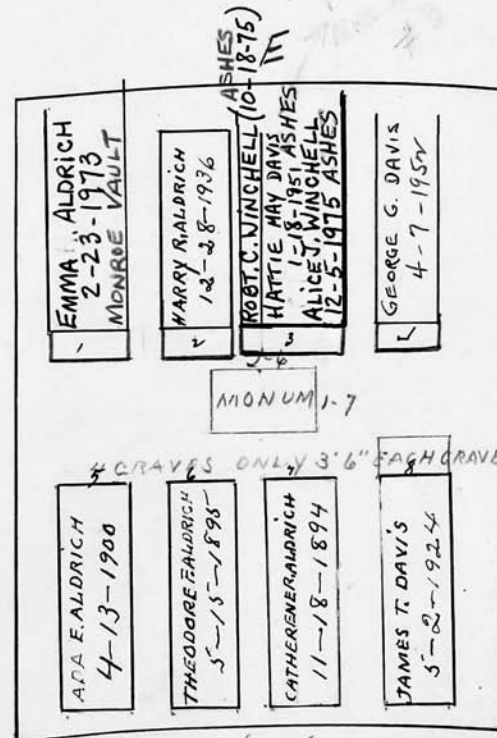 EMMA . ALDRICH
2-23-1973
MONROE VAULT
1
HARRY R. ALDRICH
12-28-1936
2
ROBT. C. WINCHELL (ASHES
10-18-75)
HATTIE MAY DAVIS
1-18-1951 ASHES
ALICE J. WINCHELL
12-5-1975 ASHES
3
GEORGE G. DAVIS
4-7-1952
MONUM 1-7
4 GRAVES ONLY 3'6" EACH GRAVE
5
ADA E. ALDRICH
4-13-1900
6
THEODORE F. ALDRICH
5-15-1895
7
CATHERENE R. ALDRICH
11-18-1894
8
JAMES T. DAVIS
5-2-1924